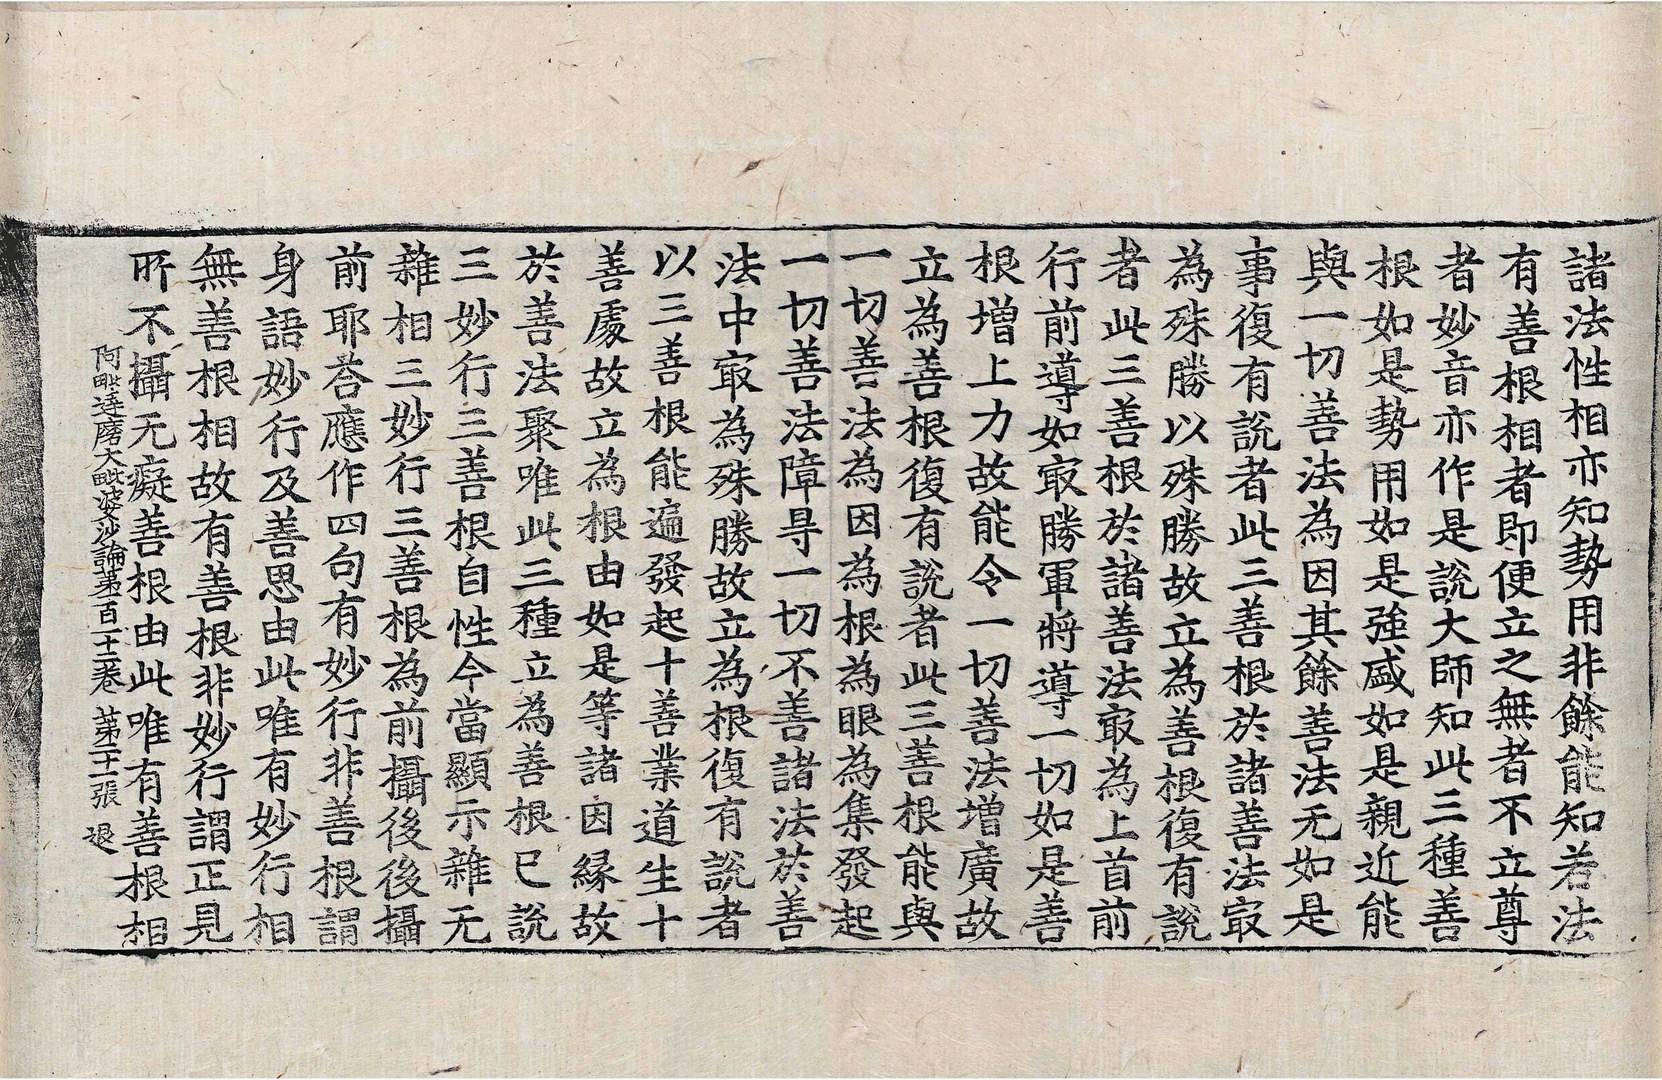 諸法性相亦知勢用非餘能知若法
有善根相者即便立之無者不立尊
者妙音亦作是說大師知此三種善
根如是勢用如是強盛如是親近能
與一切善法為因其餘善法无如是
事復有說者此三善根於諸善法㝡
為殊勝以殊勝故立為善根復有說
者此三善根於諸善法㝡為上首前
行前導如㝡勝軍將導一切如是善
根增上力故能令一切善法增廣故
立為善根復有說者此三善根能與
一切善法為因為根為眼為集發起
一切善法障㝵一切不善諸法於善
法中㝡為殊勝故立為根復有說者
以三善根能遍發起十善業道生十
善處故立為根由如是等諸因緣故
於善法聚唯此三種立為善根已說
三妙行三善根自性今當顯示雜无
雜相三妙行三善根為前攝後後攝
前耶荅應作四句有妙行非善根謂
身語妙行及善思由此唯有妙行相
無善根相故有善根非妙行謂正見
所不攝无癡善根由此唯有善根相
阿毗達磨大毗婆沙論苐一百一十二卷 苐二十一張 退